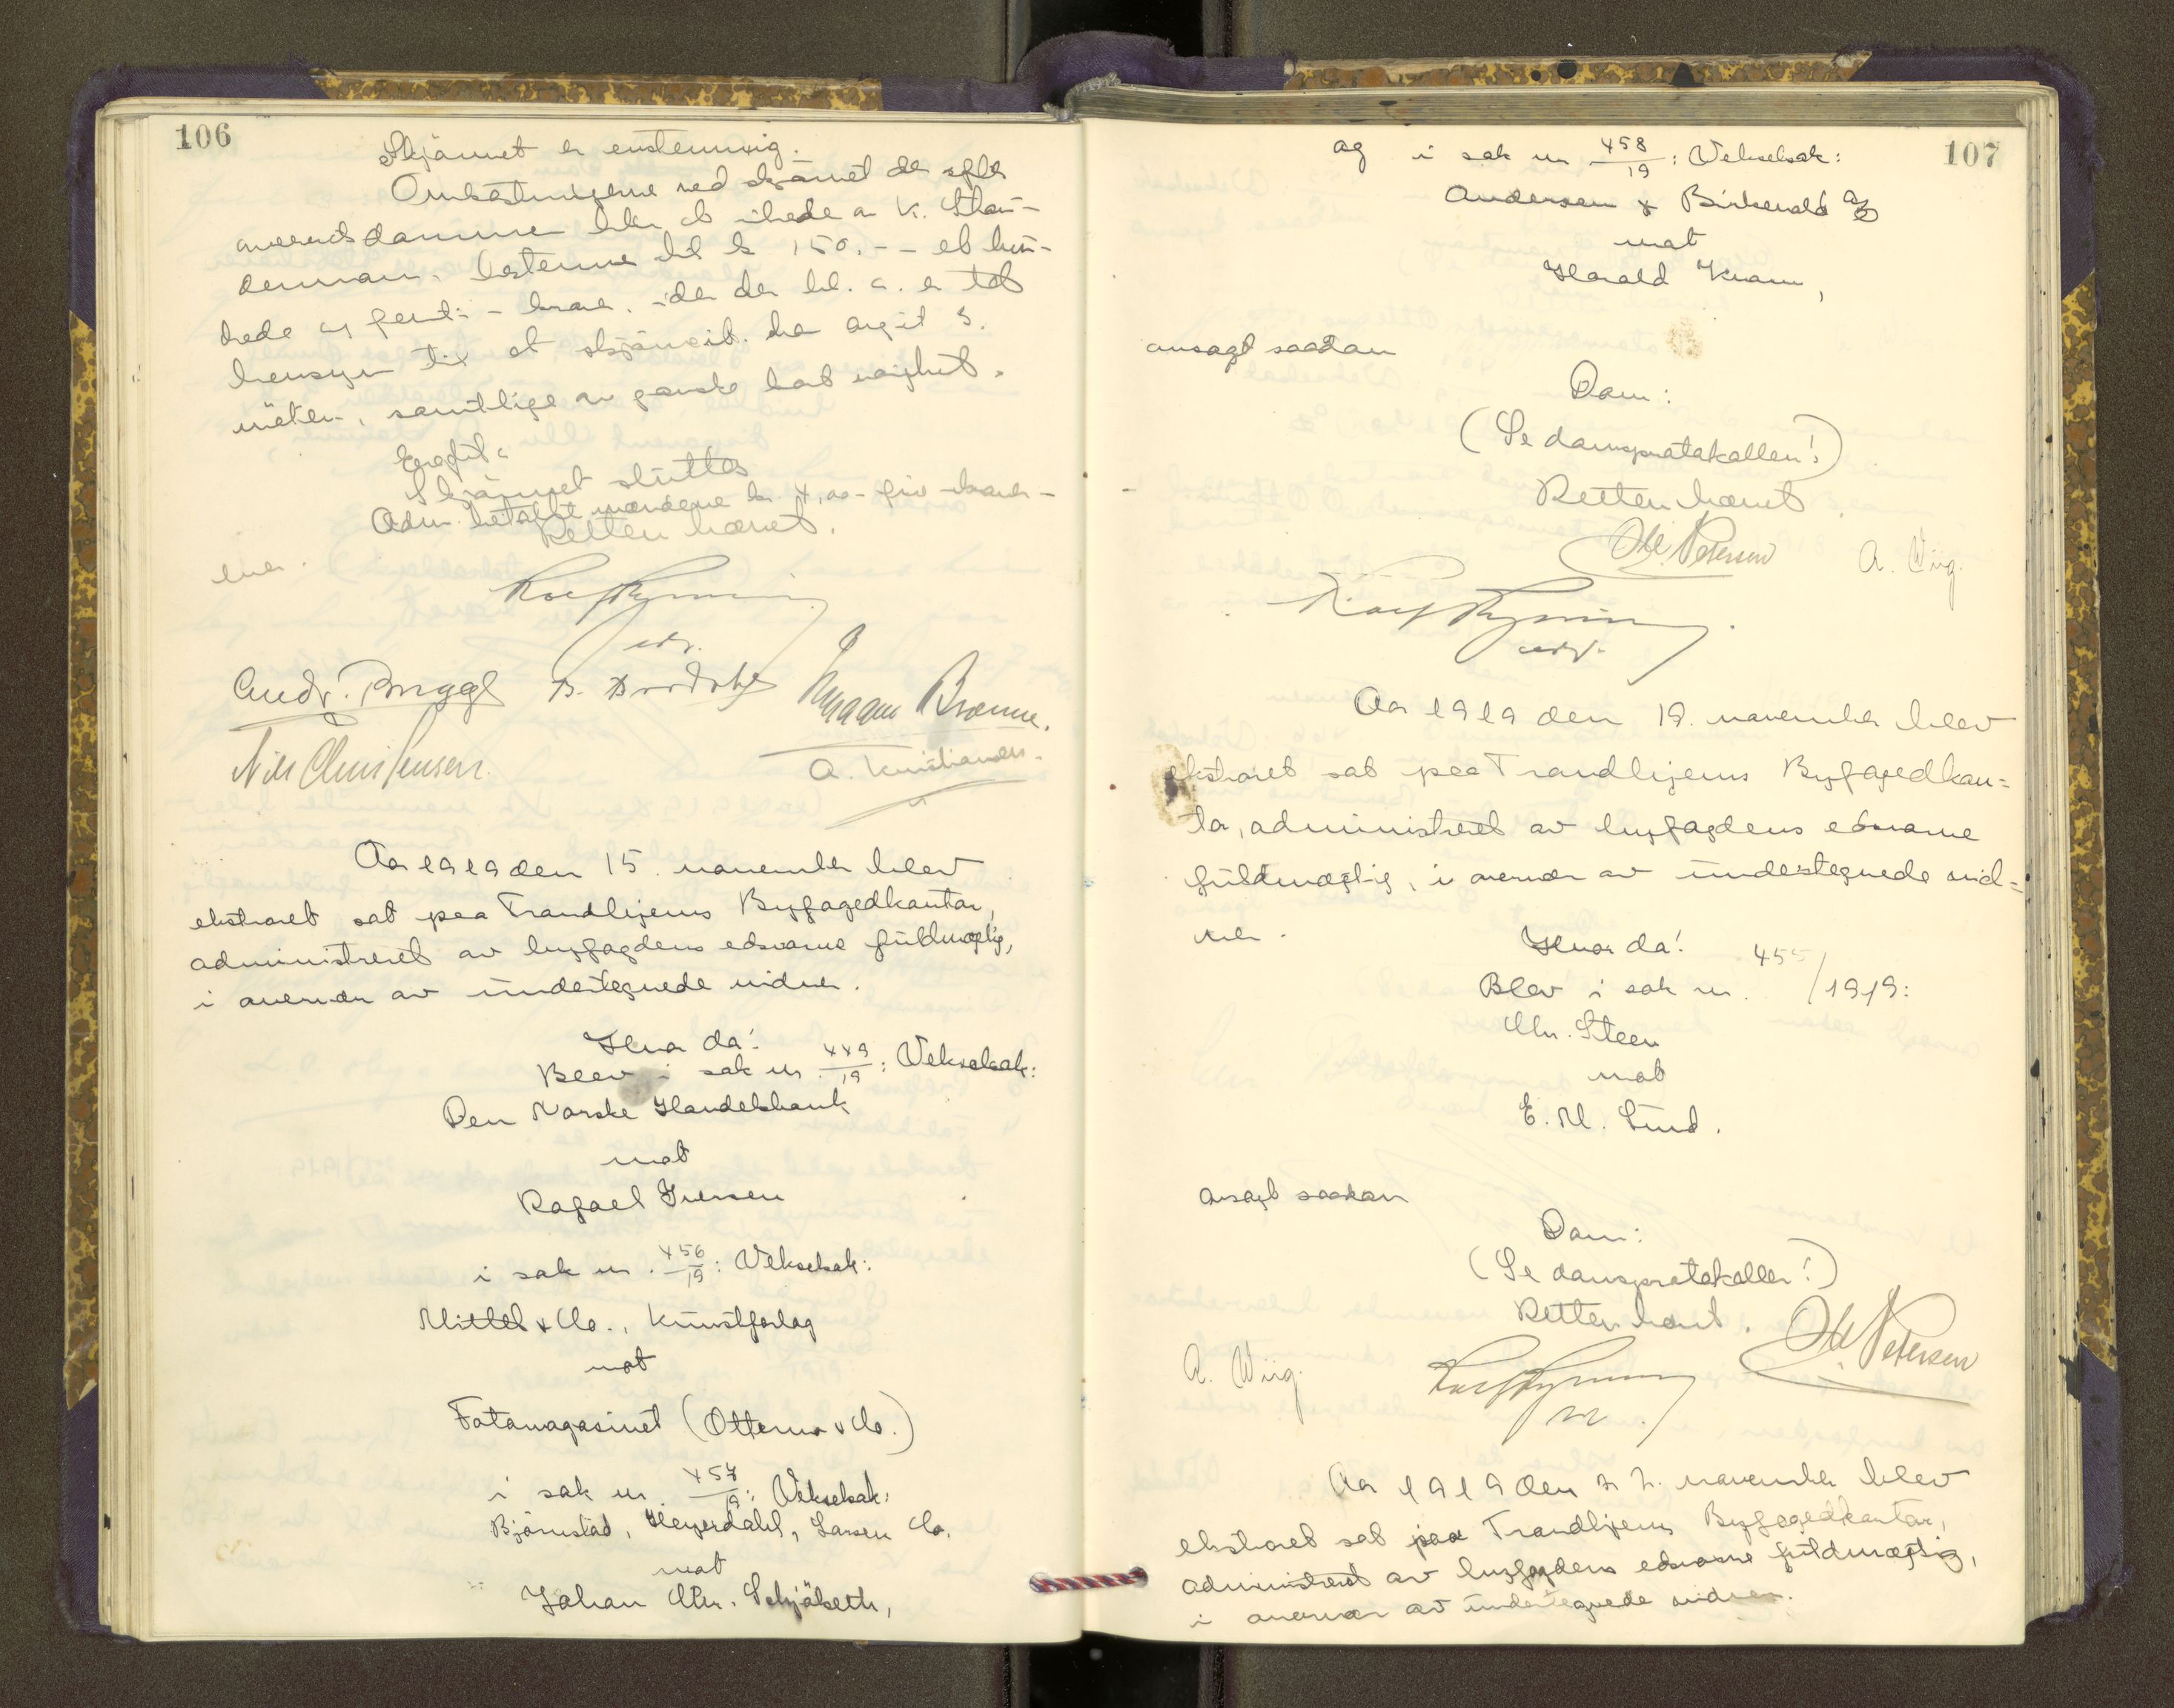 106
Skjønnet er enstemmig.
Omkostningene ved skjønnet der efter
domme blir at utrede av K. Stor-
til kr 150.-- et hun-
drede og femti - kroner, idet der bl. a. er tat
hensyn til at
møter, samtlige av ganske kort varighet.
Skjønnet sluttet
Adm. betalte mændene kr. 4,00 - fire kroner -
hver.
Retten hævet.
Nils Christensen
A. Kristiansen.
Aar 1919 den 15. november blev
ekstraret sat paa Trondhjems Byfogedkontor,
administreret av byfogdens edsvorne fuldmægtig,
i overvær av undertegnede vidner.
Hvor da:
Blev i sak nr. 449/19: Vekselsak:
Den Norske Handelsbank
mot
Rafael Iversen
i sak nr. 456/19: Vekselsak:
Mittet & Co., Kunstforlag
mot
Fotomagasinet (Otterno & Co.)
i sak nr. 457/19: Vekselsak:
Bjørnstad, Heyerdahl, Larsen Co.
mot
Johan Chr. Schjølseth,
107
og i sak nr 458/19: Vekselsak:
Andersen & Birkevold A/S
mot
Harald Kvam,
avsagt saadan
Dom:
(Se domsprotokollen!)
Retten hævet.
Ole Petersen
A. Wiig.
Aar 1919 den 19. november blev
ekstraret sat paa Trondhjems Byfogedkon=
tor, administreret av byfogdens edsvorne
fuldmægtig, i overvær av undertegnede vid=
ner.
Hvor da:
Blev i sak nr. 455/1919:
Chr. Steen
mot
E. M. Lund.
avsagt saadan
Dom:
(Se domsprotokollen!)
Retten hævet.
Ole Petersen
A. Wiig.
Aar 1919 den 22. november blev
ekstraret sat paa Trondhjems Byfogedkontor,
administreret av byfogdens edsvorne fuldmægtig,
i overvær av undertegnede vidner.